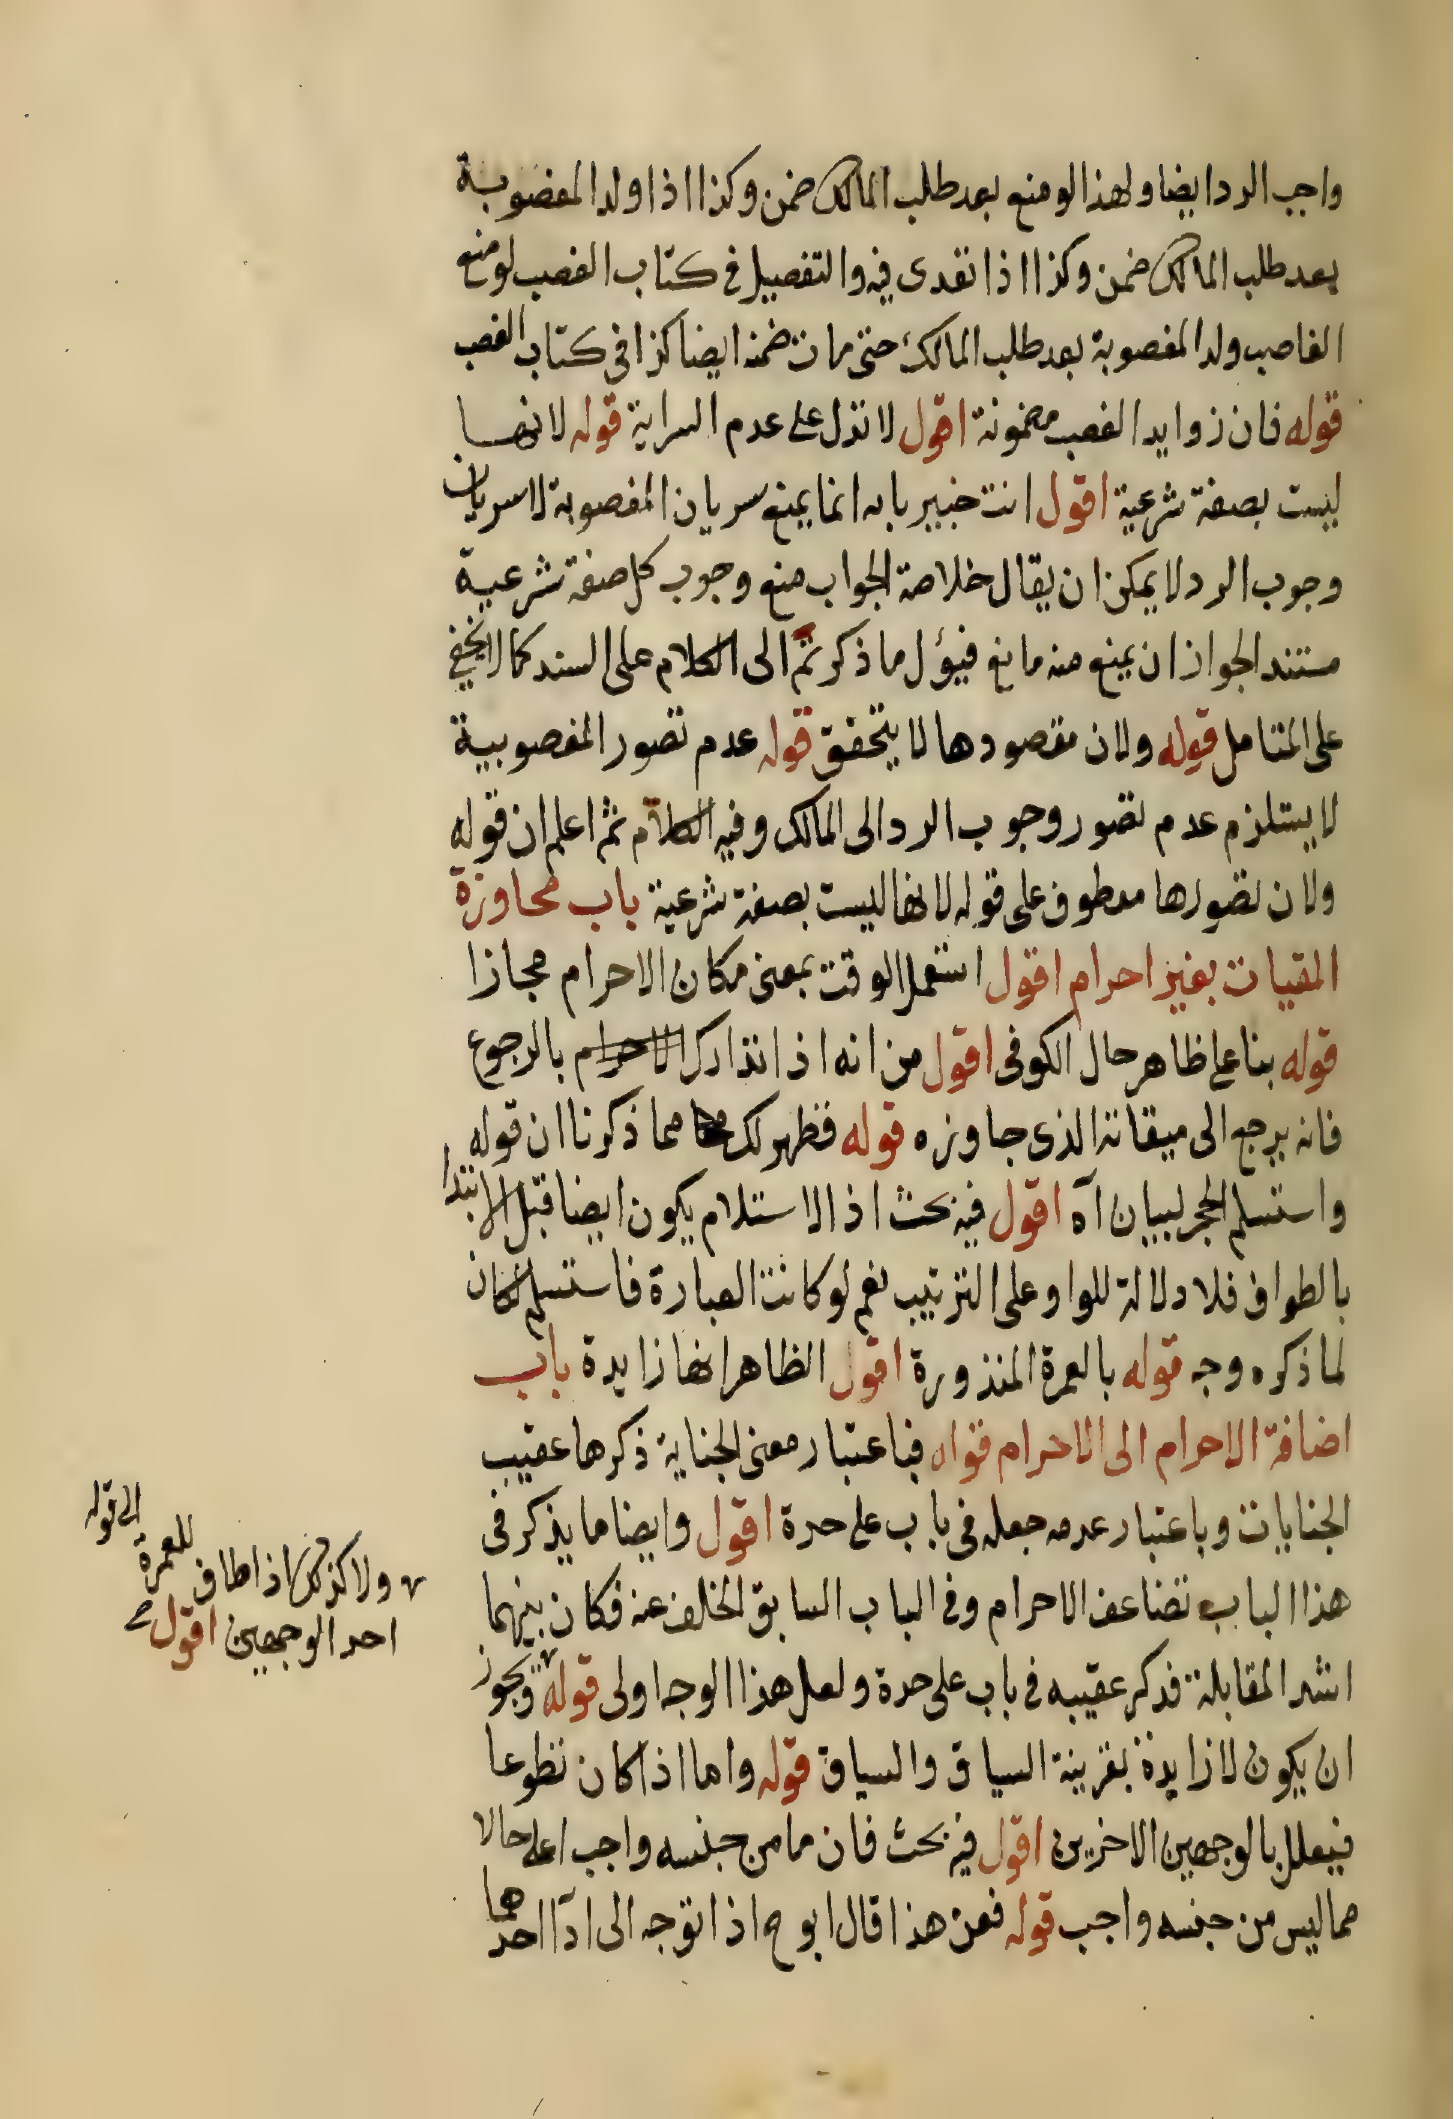 واجب الرد ايضا ولهذا لو منع بعد طلب المالك ضمن وكذا اذا ولد المغصوبة
بعد طلب المالك ضمن وكذا اذا تعدى فيه والتفصيل في كتاب الغصب لو منع
الغاصب ولد المغصوبة بعد طلب المالك حتى مات ضمنه ايضا كذا في كتاب الغصب
قوله فان زوايد الغصب مضمونة اقول لا تدل على عدم السراية قوله لانها
ليست بصفة شرعية اقول انت خبير بانه انما يمنع سريان المغصوبة لا سريان
وجوب الرد لا يمكن ان يقال خلاصة الجواب منع وجوب كل صفة شرعية
مستند الجواز ان يمنع منه مانع فيؤل ما ذكر ثم الى الكلام على السند كما لا يخفى
على المتامل قوله ولان مقصودها لا يتحقق قوله عدم تصور المغصوبية
لا يستلزم عدم تصور وجوب الرد الى المالك وفيه الكلام ثم اعلم ان قوله
ولان تصورها معطوف على قوله لانها ليست بصفة شرعية باب مجاوزة
الميقات بغير احرام اقول استعمل الوقت بمعنى مكان الاحرام مجازا
قوله بناء على ظاهر حال الكوفى اقول من انه اذا تدارك الاحرام بالرجوع
فانه يرجع الى ميقاته الذى جاوزه قوله فظهر لك مما ذكرنا ان قوله
واستلم الحجر لبيان آه اقول فيه بحث اذ الاستلام يكون ايضا قبل الابتدا
بالطواف فلا دلالة للواو على الترتيب نعم لو كانت العبارة فاستلم لكان
لما ذكره وجه قوله بالعمرة المنذورة اقول الظاهر انها زايدة باب
اضافة الاحرام الى الاحرام قوله فباعتبار معنى الجناية ذكرها عقيب
الجنايات وباعتبار عدمه جعله فى باب على حدة اقول وايضا ما يذكر فى
هذا الباب تضاعف الاحرام وفى الباب السابق الخلف عنه فكان بينهما
اشد المقابلة فذكر عقيبه فى باب على حدة ولعل هذا الوجه اولى قوله ويجوز
ان يكون لا زايدة بقرينة السياق والسياق قوله واما اذا كان تطوعا
فيعلل بالوجهين الاخرين اقول فيه بحث فان ما من جنسه واجب اعلى حالا
مما ليس من جنسه واجب قوله فعن هذا قال ابو ح اذا توجه الى ادآ احدهما
ولا كذلك اذا طاف للعمرة الى قوله
احد الوجهين اقول